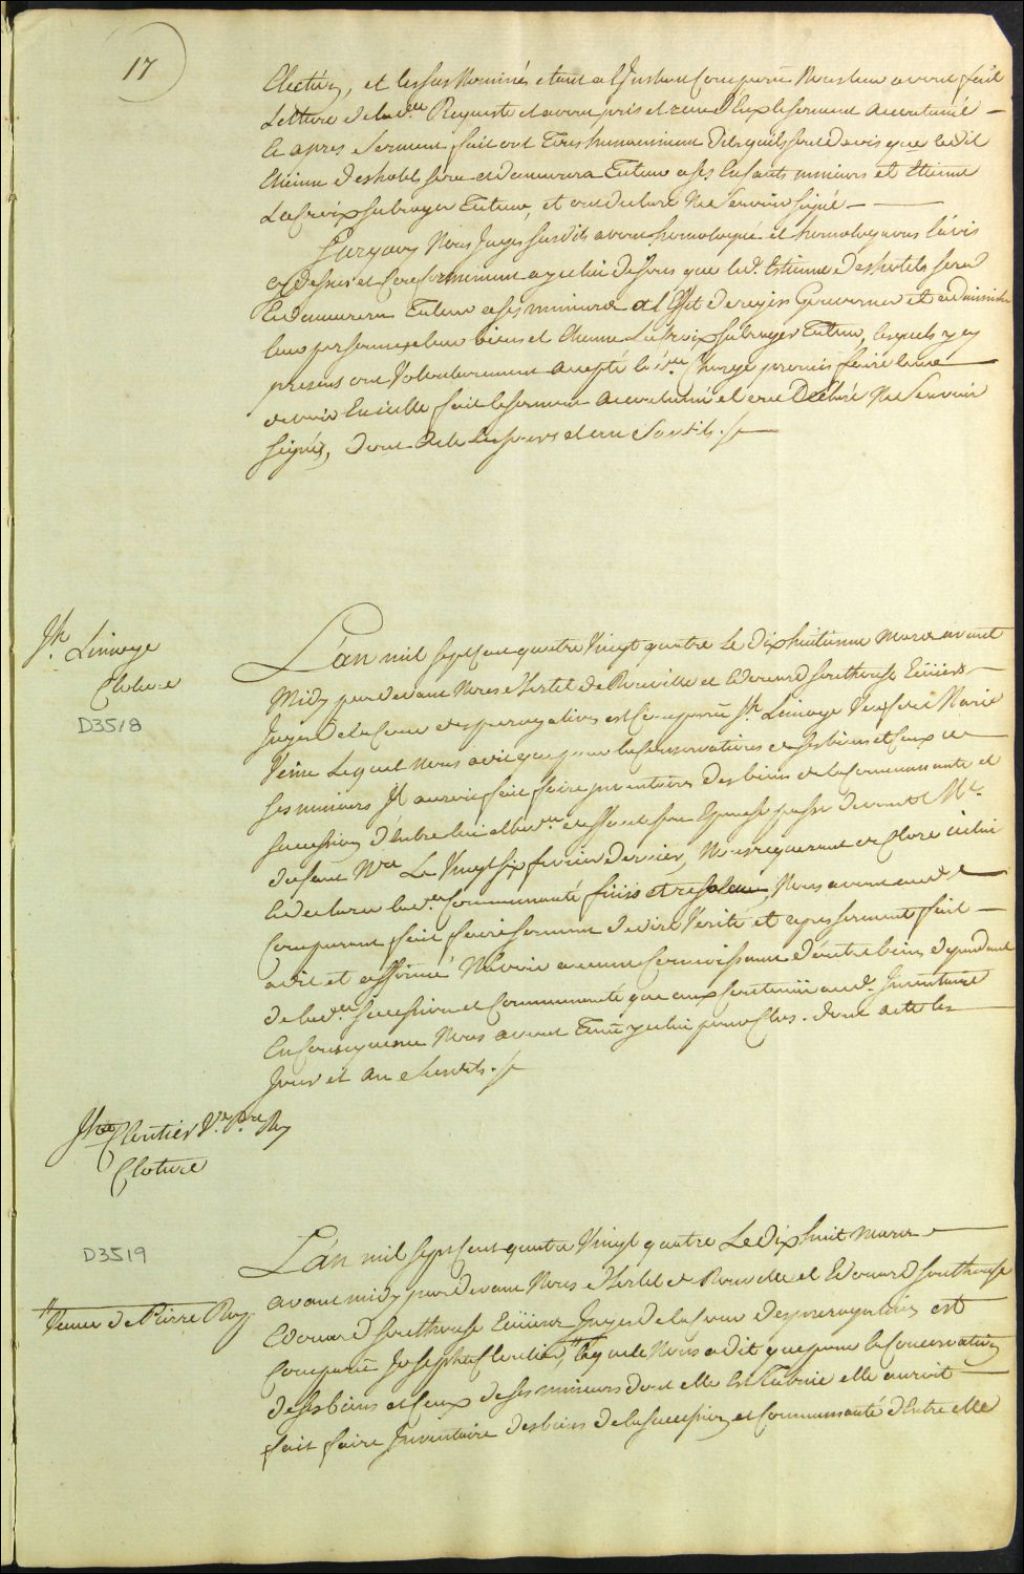 17
Election, et les sus Nommés etant a l'Instant Comparus Nous leur avons fait
Lecture de lad.te Requeste et avons pris et reçu d'Eux le serment accoutumé
Et apres Serment fait ont Tous unanimement dit quils sont d'avis que ledit
Etienne Deshotels sera et demeurera Tuteur a ses Enfants mineurs et Etienne
Lacroix subroger Tuteur, et ont declaré Ne Scavoir Signé
Surquoy Nous Juges susdits avons homologué et homologuons l'avis
cy dessus et Conformement a yceluy disons que led. Estienne Deshotels sera
Et demeurera Tuteur a ses mineurs a l'Effet de regir Gouverner et administrer
leur personne et leur biens et Etienne Lacroix subroger Tuteur, lesquels y ey
presens ont Volontairement accepté lad.te Charge promis faire leur
devoir En icelle fait le serment accoutumé et ont Déclaré Ne Scavoir
Signés, dont acte Les jours et an Susdits ./.
J.h Limoge
Cloture
D3518
L'an mil sept Cent quatre Vingt quatre Le dixhuitieme Mars avant
Midy par devant Nous Hertel De Rouville et Edouard Southouse Ecuiers
Juges De la Cour des prerogatives est Comparu J.h Limoge Veuf de Marie
Lequel Nous a dit que pour la Conservation de ses biens et Ceux de
ses mineurs Il auroit fait faire Inventaire des biens de la Communauté et
Succession d'Entre lui et lad.te deffunte son Epouse passé devant M.e
Not.re Le Vingt Six fevrier Dernier, Nous requerant de Clore icelui
Et declarer lad.te Communauté finis et resolue, Nous avons aud.t
Comparant fait faire serment de dire Verité et apres serment fait
a dit et affirmé N'avoir aucune Connoissance d'autre biens dependant
de lad.te Succession et Communauté que ceux Contenus aud. Inventaire
En Consequence Nous avons Tenu yceluy pour Clos. dont acte les
Jour et An Susdits ./.
J.te Cloutier V.e P.re Roy
Cloture
D3519
L'an mil sept Cent quatre Vingt quatre Le dix huit Mars
avant midy par devant Nous Hertel de Rouville et Edouard Southouse
Edouard Southouse Ecuiers Juges de la Cour des prerogatives est
"Veuve de Pierre Roy
Comparu Josephte Cloutier " laquele Nous a dit que pour la Conservation
de ses biens et Ceux de ses mineurs dont elle Est Tutrice elle auroit
fait faire Inventaire des biens de la Succession et Communauté d'Entre elle